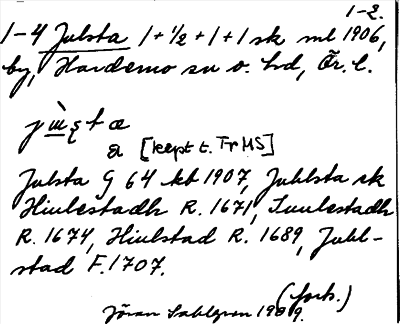 1-2.
1-4 Julsta 1+½+1+1 sk ml 1906,
by, Hardemo sn o. hd, Ör. l.
a [kept t. Tr MS]
Julsta G 64 kb 1907, Juhlsta sk
Hiulestadh R. 1671, Iuulestadh
R. 1674, Hiulstad R. 1689, Juhl-
stad F. 1707.
(forts.)
Jöran Sahlgren 1909.